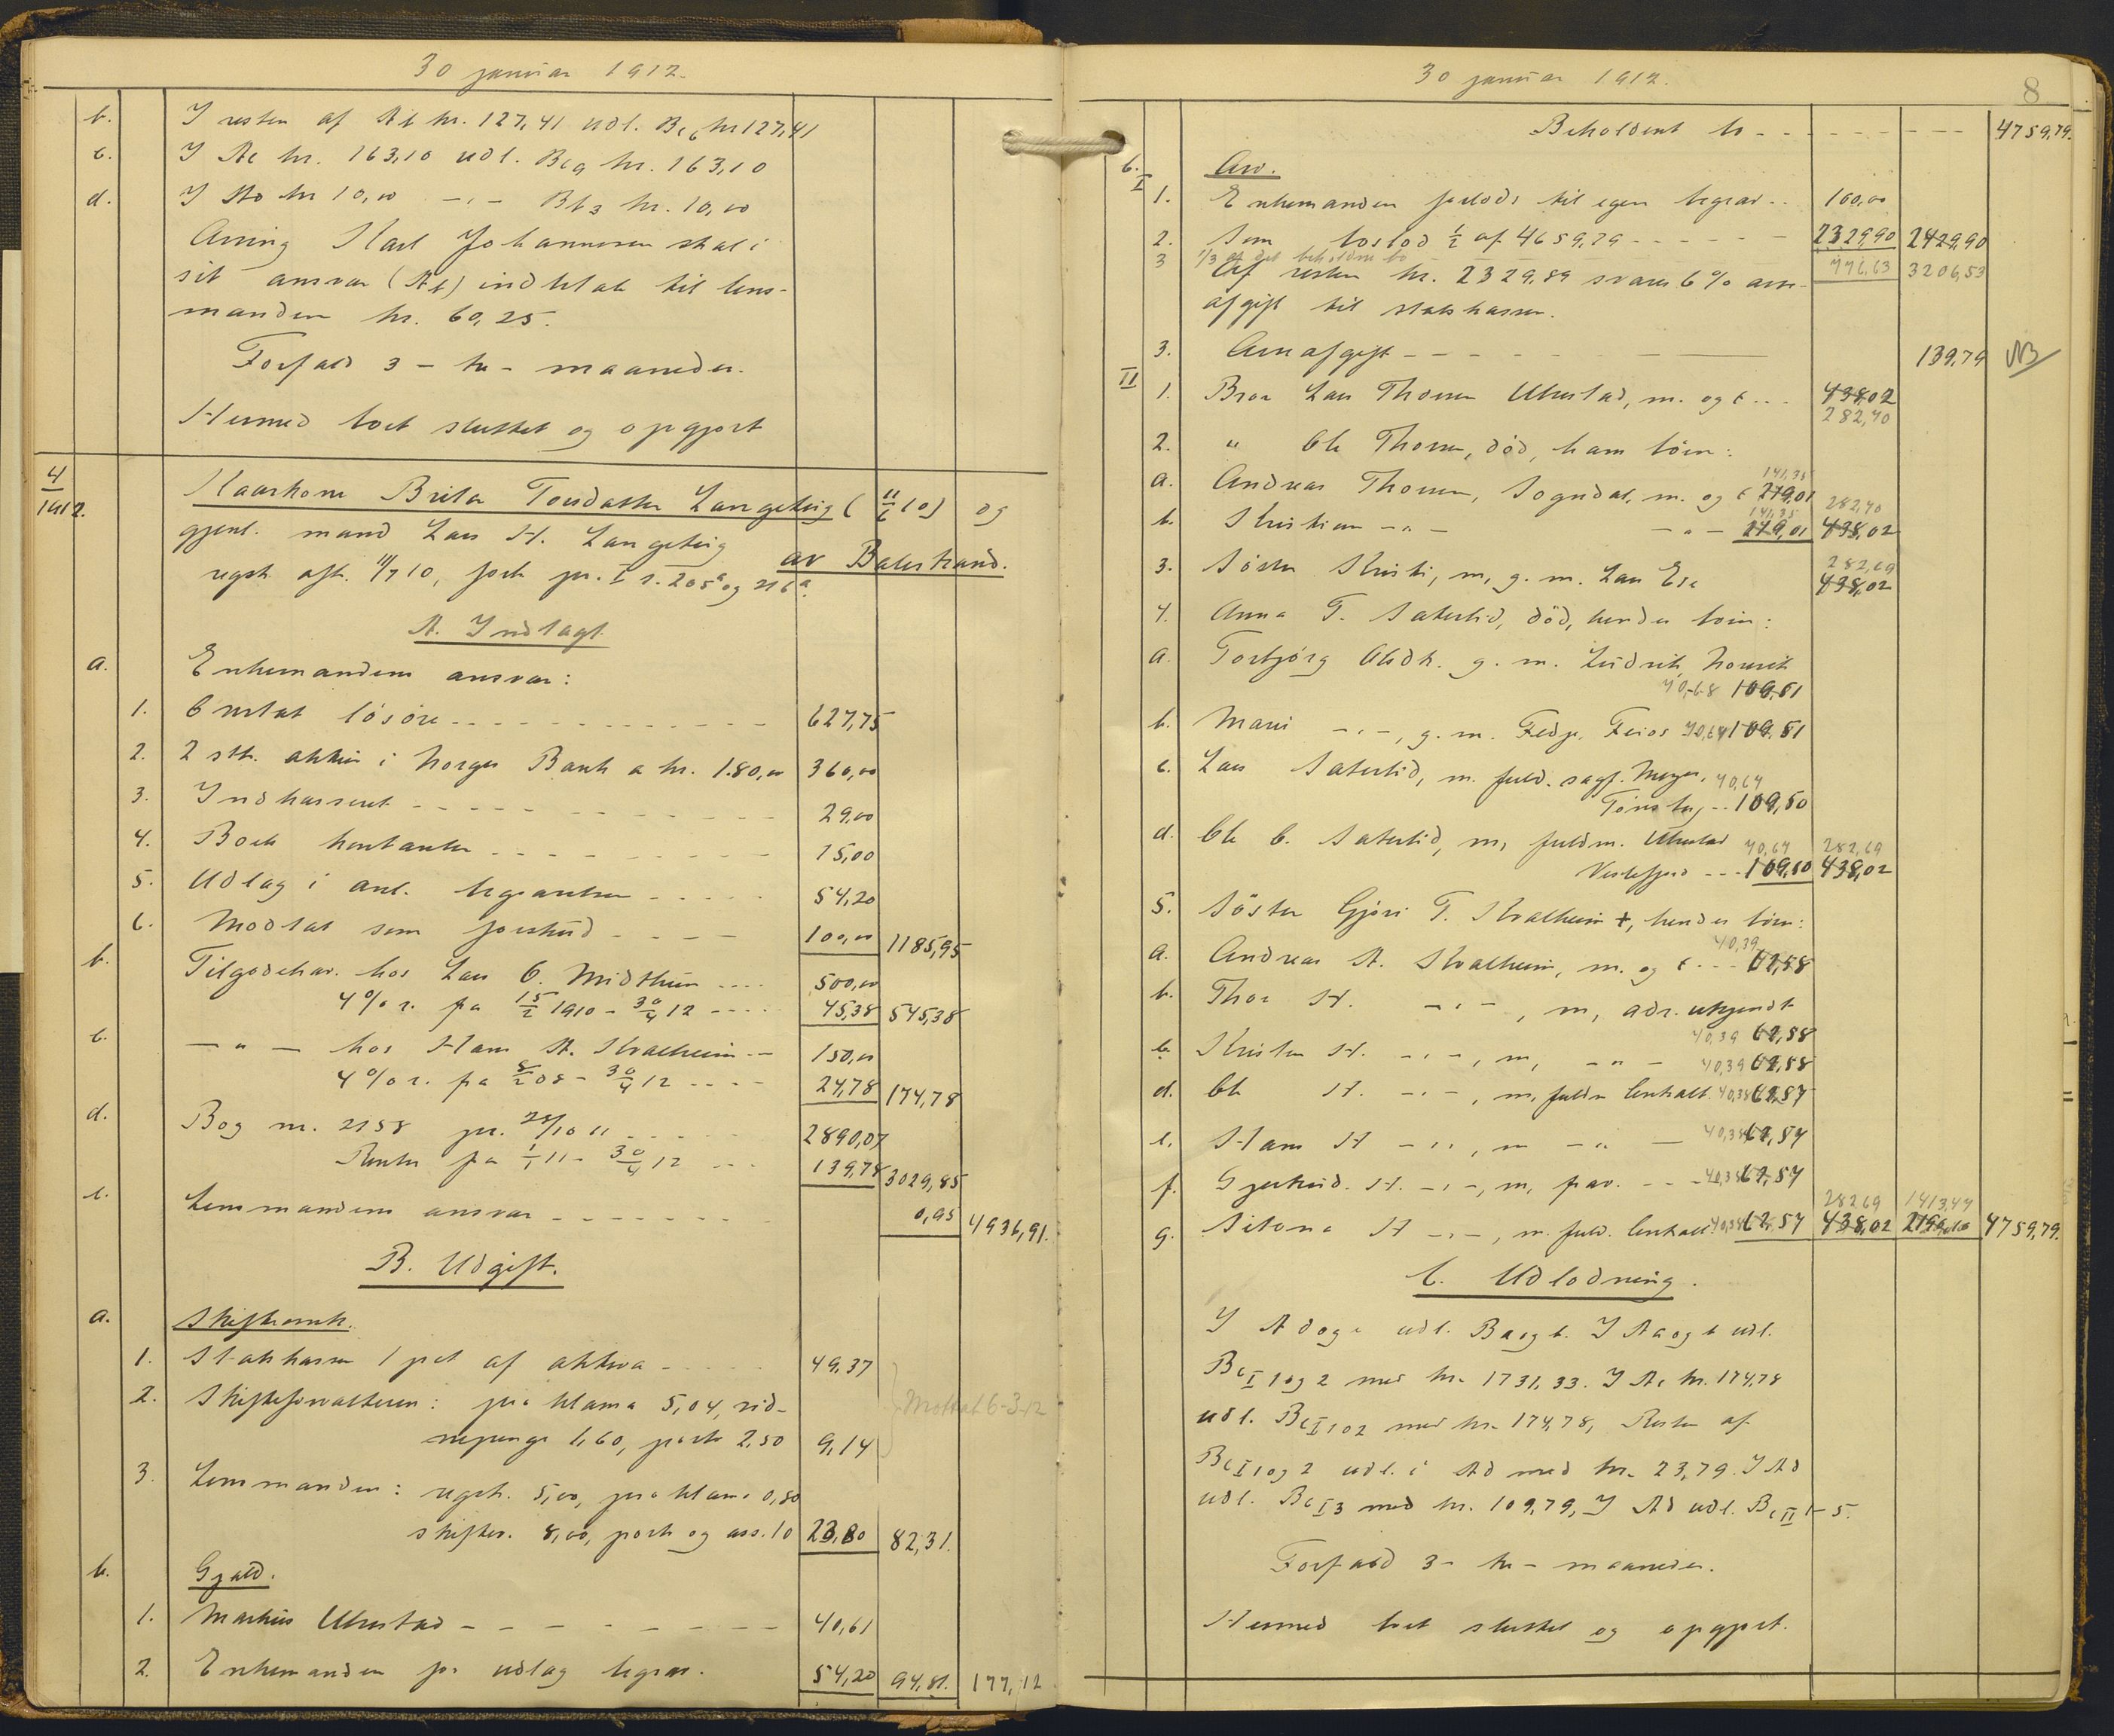 30 januar 1912.
b. I resten af Ab kr. 127,41 udl. Bc6 kr 127,41
c. I Ac kr. 163,10 udl. Bc9 kr. 163,10
d. I Ad kr 10,00 -"- Bb3 kr. 10,00
Arving Karl Johannesen skal i
sit ansvar (Ab) indbetale til lens-
manden kr. 60,25.
Forfald 3 - tre - maaneder.
Hermed boet sluttet og opgjort
4/1912. Kaarkone Brita Tordatter Langeteig (11/6 10) og
gjenl. mand Lars H. Langeteig av Balestrand.
regstr. aft. 11/7 10, fork. pr. I s. 205a og 216a.
A. Indtagt.
a. Enkemandens ansvar:
1. Omtat løsøre 627,75
2. 2 stk. aktier i Norges Bank a kr. 180,00 360,00
3. Indkasseret 29,00
4. Boets kontanter 15,00
5. Udlag i anl. begravelsen 54,20
6. Modtat som forskud 100,00 1185,95
b. Tilgodehav. hos Lars O. Midthun 500,00
4% r. fra 15/2 1910 - 30/4 12 45,38 545,38
c. -"- hos Hans A. Kvalheim 150,00
4% r. fra 8/2 08 - 30/4 12 24,78 174,78
d. Bog nr. 2158 pr. 28/10 11 2890,07
Renter fra 1/1 11 - 30/4 12 139,78 3029,85
e. Lensmandens ansvar 0,95 4936,91.
B. Udgift.
a. Skifteomk.
1. Statskassen 1 pct af aktiva 49,37
2. Skifteforvalteren: proklama 5,04, vid-
nepenge 1,60, porto 2,50 9,14
Mottat 6-3-12
3. Lensmanden: regstr. 5,00, proklama 0,80
skiftev. 8,00, porto og ass. 10 23,80 82,31.
b. Gjæld.
1. Markus Ulvestad 40,61
2. Enkemanden for udlag begrav. 54,20 94,81. 177,12
30 januar 1912.
8
Beholdent bo 4759,79.
c. Arv.
I
1. Enkemanden forlods til egen begrav. 100,00
2. Som boslod 1/2 af 4659,79 2329,90 2429,90
3 1/3 af det beholdne bo 776,63 3206,53
Af resten kr. 2329,89 svares 6% arve-
afgift til statskassen.
3. Arveafgift 139,79 NB
II
1. Bror Lars Thorsen Ulvestad, m. og t. 438,02
282,70
2. " Ole Thorsen, død, hans børn:
141,35
a. Andreas Thorsen, Sogndal, m. og t 219,01 282,70
141,35
b. Kristian -"- -"- 219,01 438,02
282,69
3. Søster Kristi, m, g. m. Lars Ese 438,02
4. Anna T. Sæterlid, død, hendes børn:
a. Torbjørg Olsdtr. g. m. Ludvik, Nornvik
70,68 109,51
b. Mari -"-, g. m. Fedje, Feios 70,68 109,51
c. Lars Sæterlid, m. fuld. sagf. Meyer, 70,67
Tønsberg 109,50
d. Ole O. Sæterlid, m, fuldm. Ulvestad 70,67 282,69
Vestefjord 109,50 438,02
5. Søster Gjøri T. Kvalheim +, hendes børn:
40,39
a. Andreas A. Kvalheim, m. og t. 62,58
b. Thor H. -"-, m, adr. ukjendt
40,39 62,58
c. Kristen H. -"-, m, -"- 40,39 62,58
d. Ole H. -"-, m, fuldm lenkall. 40,38 62,57
e. Hans H -"-, m -"- 40,38 62,57
f. Gjertrud H. -"-, m, frav. 40,38 62,57
282,69 1413,47
g. Sitona H -"-, m. fuld. lenkall. 40,38 62,57 438,02 2190,10 4759,79.
C. Udlodning.
I Ad og e udl. Ba og b. I Aa og b udl.
BcI 1 og 2 med kr. 1731,33. I Ac kr. 174,78
udl. BcI 1 o 2 med kr. 174,78, Resten af
BcI 1 og 2 udl. i Ad med kr. 23,79. I Ad
udl. BcI3 med kr. 109,79, I Ad udl. BcII 1-5.
Forfald 3 - tre - maaneder.
Hermed boet sluttet og opgjort.